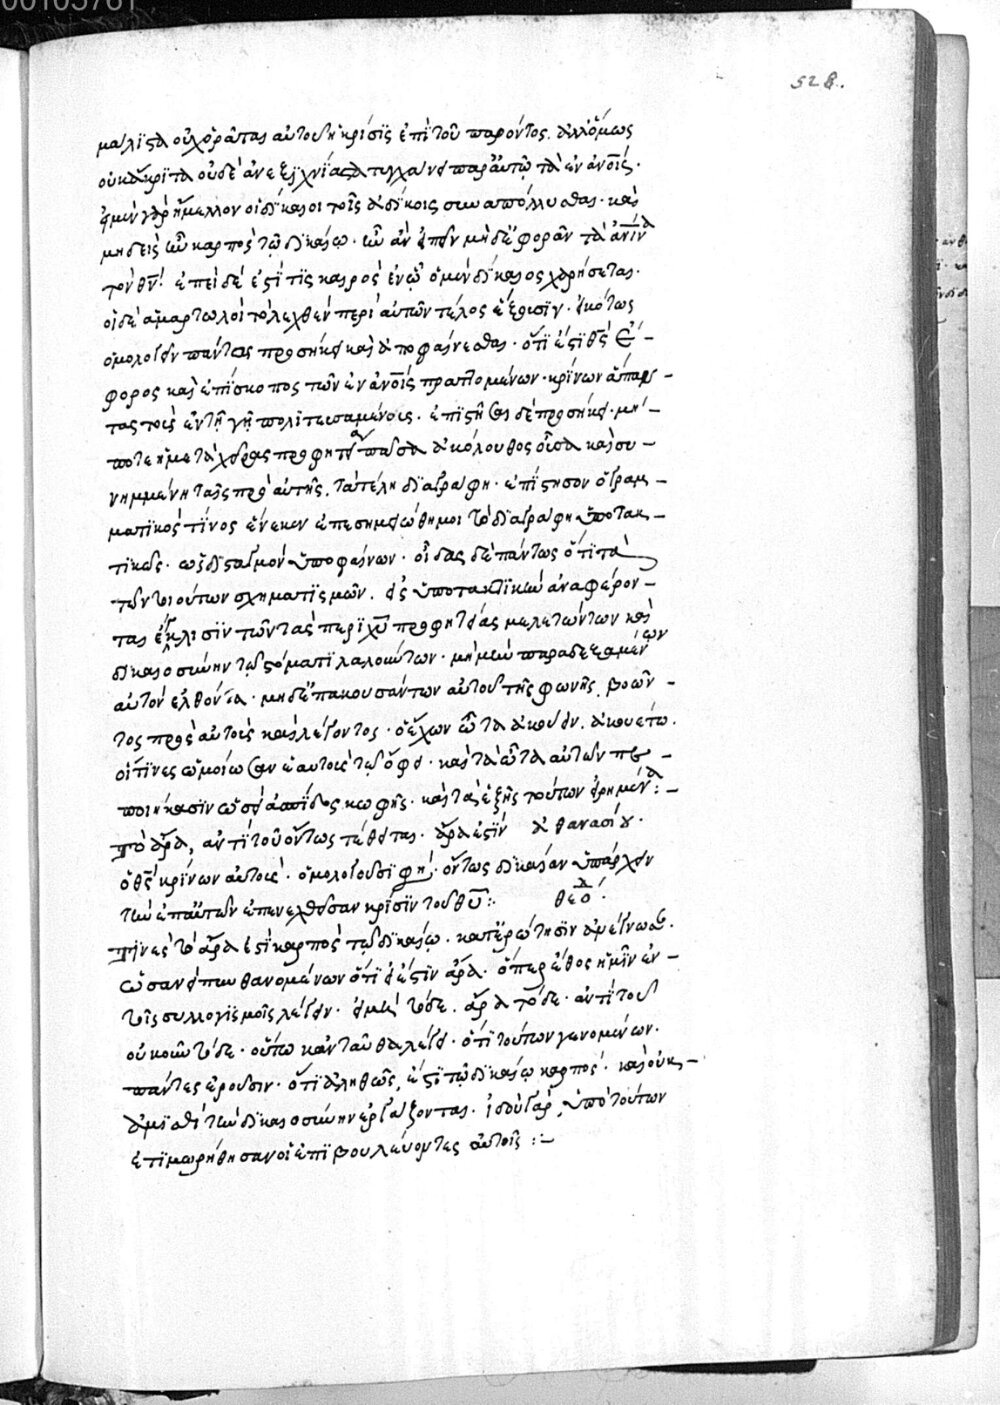 00105761
528.
μάλιστα οὐχ ὁρᾶται αὐτοῦ ἡ κρίσις ἐπὶ τοῦ παρόντος. ἀλλ' ὅμως
οὐκ ἄκριτα οὐδὲ ἀνεξιχνίαστα τυγχάνει παρ' αὐτῷ τὰ ἐν ἀνοις.
εἰ μὲν γὰρ ἤμελλον οἱ δίκαιοι τοῖς ἀδίκοις συναπόλλυσθαι. καὶ
μηδεὶς ἦν καρπὸς τῷ δικαίῳ. ἦν ἂν εἰπεῖν μὴ δὲ ἐφορᾶν τὰ ἀνινα
τὸν θν. ἐπεὶ δέ ἐστί τις καιρὸς ἐν ᾧ ὁ μὲν δίκαιος χαρήσεται.
οἱ δὲ ἁμαρτωλοὶ τὸ λεχθὲν περὶ αὐτῶν τέλος ἕξουσιν. εἰκότως
ὁμολογεῖν πάντας προσήκει καὶ ἀποφαίνεσθαι. ὅτι ἐστὶ θς ἔ-
φορος καὶ ἐπίσκοπος τῶν ἐν ἀνοις πραττομένων. κρίνων ἅπαν-
τας τοὺς ἐν τῇ γῇ πολιτευσαμένους. ἐπιστῆσαι δὲ προσήκει. μή-
ποτε ἡ μετὰ χεῖρας προφητεία πᾶσα ἀκόλουθος οὖσα καὶ συ-
νημμένη ταῖς πρὸ αὐτῆς. τὰ τέλη διαγράφη. ἐπίστησον ὁ γραμ-
ματικὸς τίνος ἕνεκεν ἐπεσημειώθη μοι τὸ διαγράφη ὑποτακ-
τικῶς. ὡς δισταγμὸν ὑποφαίνων. οἶδας δὲ πάντως ὅτι τὰ
τῶν τοιούτων σχηματισμῶν. εἰς ὑποτακτικὴν ἀναφέρον-
ται ἔγκλισιν τῶν τὰς περὶ χυ προφητείας μελετώντων καὶ
δικαιοσύνην τῷ στόματι λαλούντων. μὴ μὴν παραδεξαμένων
αὐτὸν ἐλθόντα. μηδ' ἐπακουσάντων αὐτοῦ τῆς φωνῆς βοῶν-
τος πρὸς αὐτοὺς καὶ λέγοντος. ὁ ἔχων ὦτα ἀκούειν. ἀκουέτω.
οἵτινες ὡμοίωσαν ἑαυτοὺς τῷ ὄφει. καὶ τὰ ὦτα αὐτῶν πε-
ποιήκασιν ὡσεὶ ἀσπίδος κωφῆς. καὶ τὰ ἑξῆς τούτων εἰρημένα :-
τὸ ἄρα, ἀντὶ τοῦ ὄντως τέθειται. ἄρα ἐστὶν ἀθανασίου.
ὁ θς κρίνων αὐτούς. ὁμολογοῦσι φησί. ὄντως δικαίαν ὑπάρχειν
τὴν ἐπ' αὐτῶν ἐπενεχθεῖσαν κρίσιν τοῦ θυ :. θεοδ.
τινὲς τὸ ἄρα ἐστὶ καρπὸς τῷ δικαίῳ. κατ' ἐρώτησιν ἀνέγνωσαν.
ὡσανεὶ πυνθανομένων ὅτι εἰ ἐστὶν ἄρα. ὅπερ ἔθος ἡμῖν ἐν-
τοῖς συλλογισμοῖς λέγειν. εἰ μὴ τόδε. ἄρα τόδε. ἀντὶ τοῦ
οὐκοῦν τόδε. οὕτω κἀνταῦθα λέγει. ὅτι τούτων γενομένων.
πάντες ἐροῦσιν. ὅτι ἀληθῶς, ἔστι τῷ δικαίῳ καρπός. καὶ οὐκ-
ἀμισθὶ τὴν δικαιοσύνην ἐργάζονται. ἰδοὺ γὰρ, ὑπὸ τούτων
ἐτιμωρήθησαν οἱ ἐπιβουλεύοντες αὐτοῖς :-